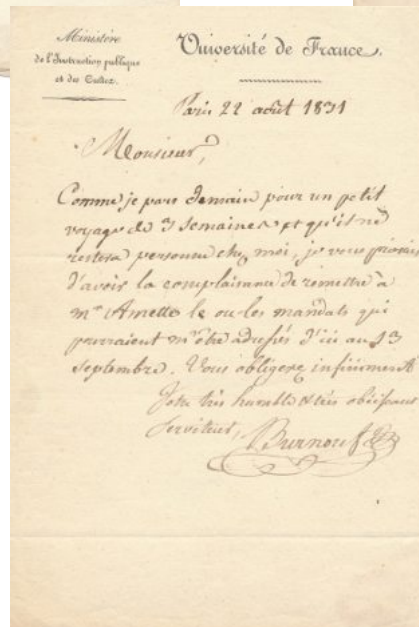 Ministère
de l'Instruction publique
et des Cultes.
Université de France.
Paris 22 août 1831
Monsieur,
Comme je pars demain pour un petit
voyage de 3 semaines et qu'il ne
restera personne chez moi, je vous prierais
d'avoir la complaisance de remettre à
mr Amette le ou les mandats qui
pourraient m'être adressés d'ici au 13
septembre. Vous obligerez infiniment
Votre très humble & très obéissant
serviteur,
Burnouf